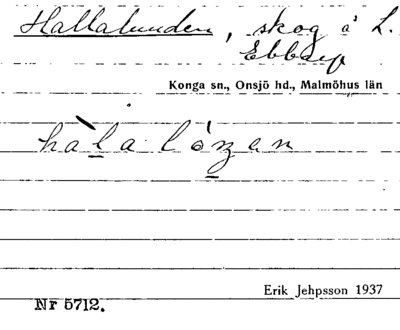 Hallalunden, skog å L.
Ebbarp
Konga sn., Onsjö hd., Malmöhus län
Erik Jehpsson 1937
Nr 5712.